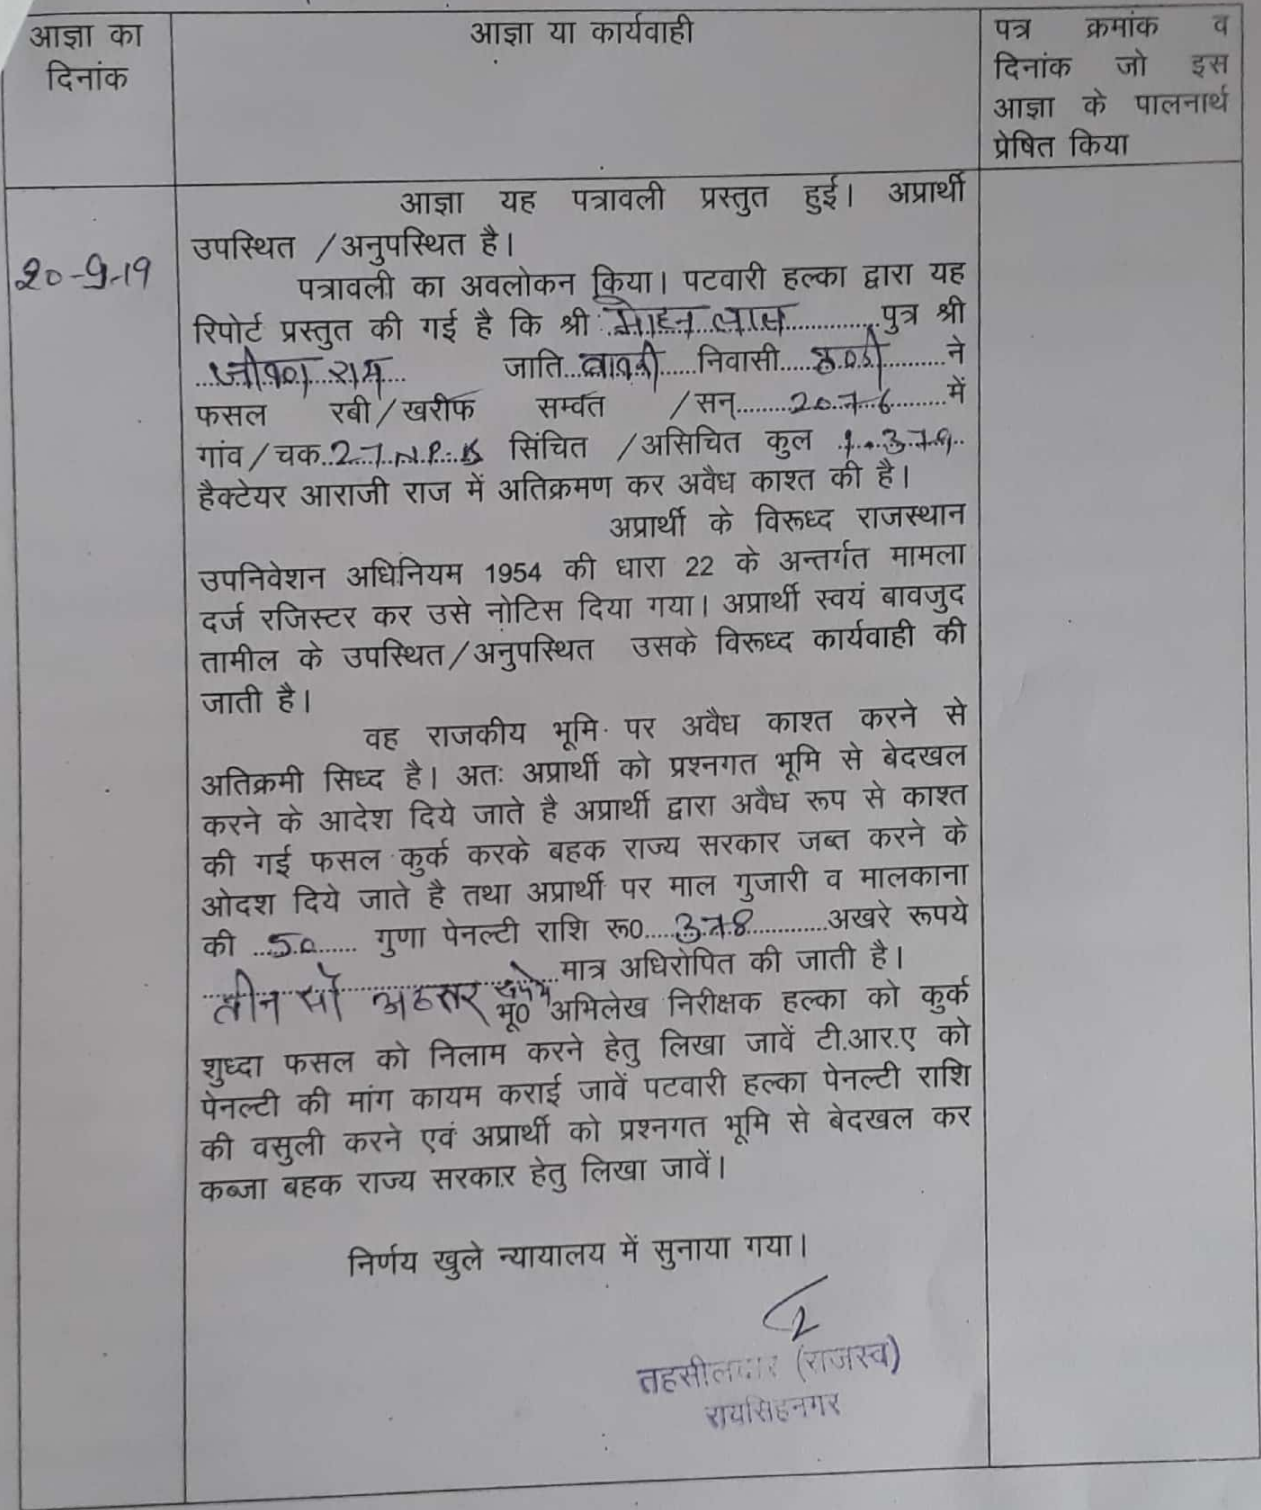 आज्ञा का
दिनांक
आज्ञा या कार्यवाही
पत्र क्रमांक व
दिनांक जो इस
आज्ञा के पालनार्थ
प्रेषित किया
20-9-19
आज्ञा यह पत्रावली प्रस्तुत हुई। अप्रार्थी
उपस्थित /अनुपस्थित है।
पत्रावली का अवलोकन किया। पटवारी हल्का द्वारा यह
रिपोर्ट प्रस्तुत की गई है कि श्री मोहन लाल पुत्र श्री
राम जाति बावरी निवासी ने
फसल रबी/खरीफ सम्वत /सन् 2076 में
गांव/चक 27 N.P.B सिंचित /असिचित कुल 1.379
हैक्टेयर आराजी राज में अतिक्रमण कर अवैध काश्त की है।
अप्रार्थी के विरूध्द राजस्थान
उपनिवेशन अधिनियम 1954 की धारा 22 के अन्तर्गत मामला
दर्ज रजिस्टर कर उसे नोटिस दिया गया। अप्रार्थी स्वयं बावजुद
तामील के उपस्थित/अनुपस्थित उसके विरूध्द कार्यवाही की
जाती है।
वह राजकीय भूमि पर अवैध काश्त करने से
अतिक्रमी सिध्द है। अतः अप्रार्थी को प्रश्नगत भूमि से बेदखल
करने के आदेश दिये जाते है अप्रार्थी द्वारा अवैध रूप से काश्त
की गई फसल कुर्क करके बहक राज्य सरकार जब्त करने के
ओदश दिये जाते है तथा अप्रार्थी पर माल गुजारी व मालकाना
की 50 गुणा पेनल्टी राशि रू0 378 अखरे रूपये
तीन सौ अठतर रूपये मात्र अधिरोपित की जाती है।
भू0 अभिलेख निरीक्षक हल्का को कुर्क
शुध्दा फसल को निलाम करने हेतु लिखा जावें टी.आर.ए को
पेनल्टी की मांग कायम कराई जावें पटवारी हल्का पेनल्टी राशि
की वसुली करने एवं अप्रार्थी को प्रश्नगत भूमि से बेदखल कर
कब्जा बहक राज्य सरकार हेतु लिखा जावें।
निर्णय खुले न्यायालय में सुनाया गया।
तहसीलदार (राजस्व)
रायसिहनगर